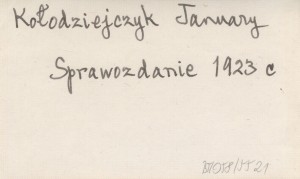 Kołodziejczyk January
Sprawozdanie 1923 c